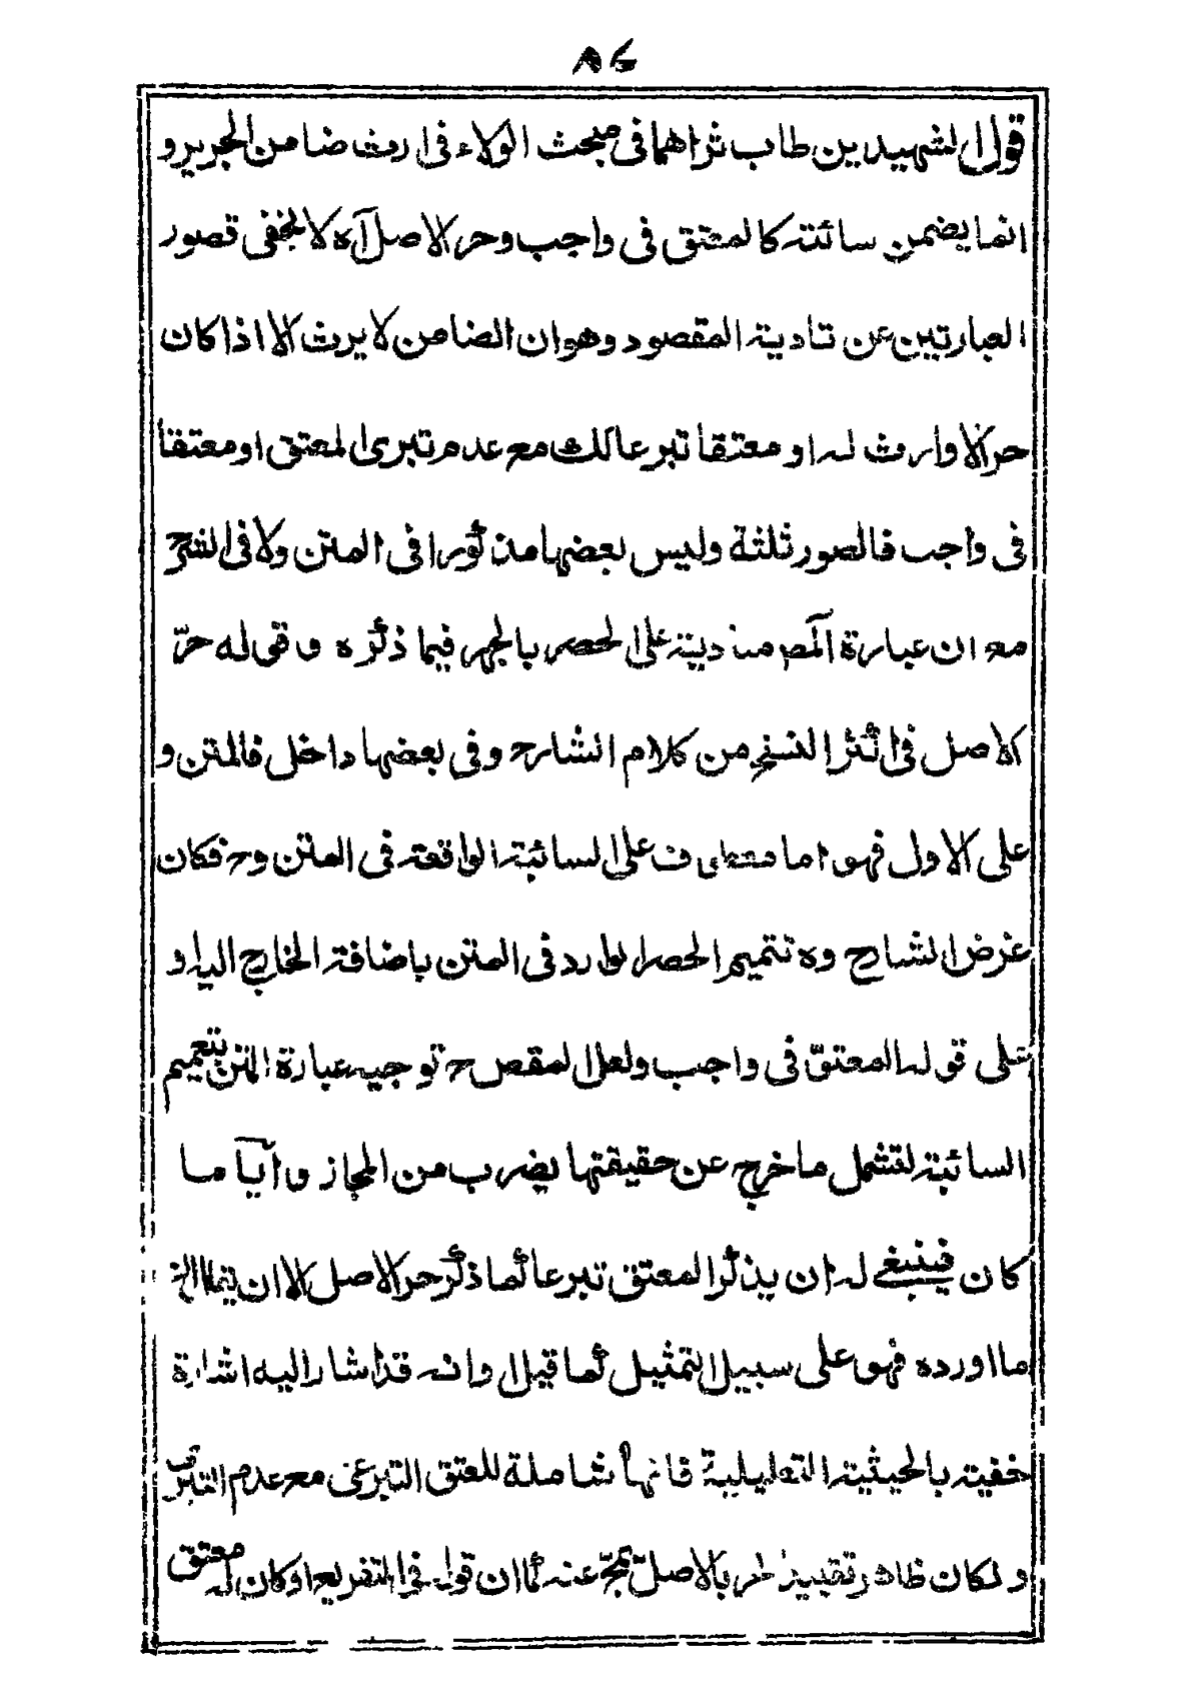 ٨٤
قول الشهيدين طاب ثراهما فى مبحث الولاء فى ارث ضامن الجريرو
انما يضمن سائبته كالمعتق فى واجب وحر الاصل آه لا يخفى قصور
العبارتين عن تادية المقصود وهو ان الضامن لا يرث الا اذا كان
حرا لا وارث له او معتقا تبرعا كك مع عدم تبرى المعتق او معتقا
فى واجب فالصور ثلثة وليس بعضها مذكورا فى المتن ولا فى الشرح
مع ان عبارة المص منادية على الحصر بالجهر فيما ذكره وقوله حرّ
الاصل فى اكثر النسخ من كلام الشارح وفى بعضها داخل فالمتن و
على الاول فهو اما معطوف على السائبة الواقعة فى المتن وح فكان
غرض الشارح ره تتميم الحصر الوارد فى المتن باضافة الخارج اليه او
على قوله المعتق فى واجب ولعل المقص ح توجيه عبارة المتن بتعميم
السائبة لتشمل ما خرج عن حقيقتها بضرب من المجاز وايّا ما
كان فينبغى له ان يذكر المعتق تبرعا كما ذكر حر الاصل الا ان يقال ان
ما اورده فهو على سبيل التمثيل كما قيل او انه قد اشار اليه اشارة
خفية بالحيثية التعليلية فانها شاملة للعتق التبرعى مع عدم التبرى
ولكان ظاهر تقييد الحر بالاصل يمجّ عنه كما ان قوله فى التفريع او كان له معتق